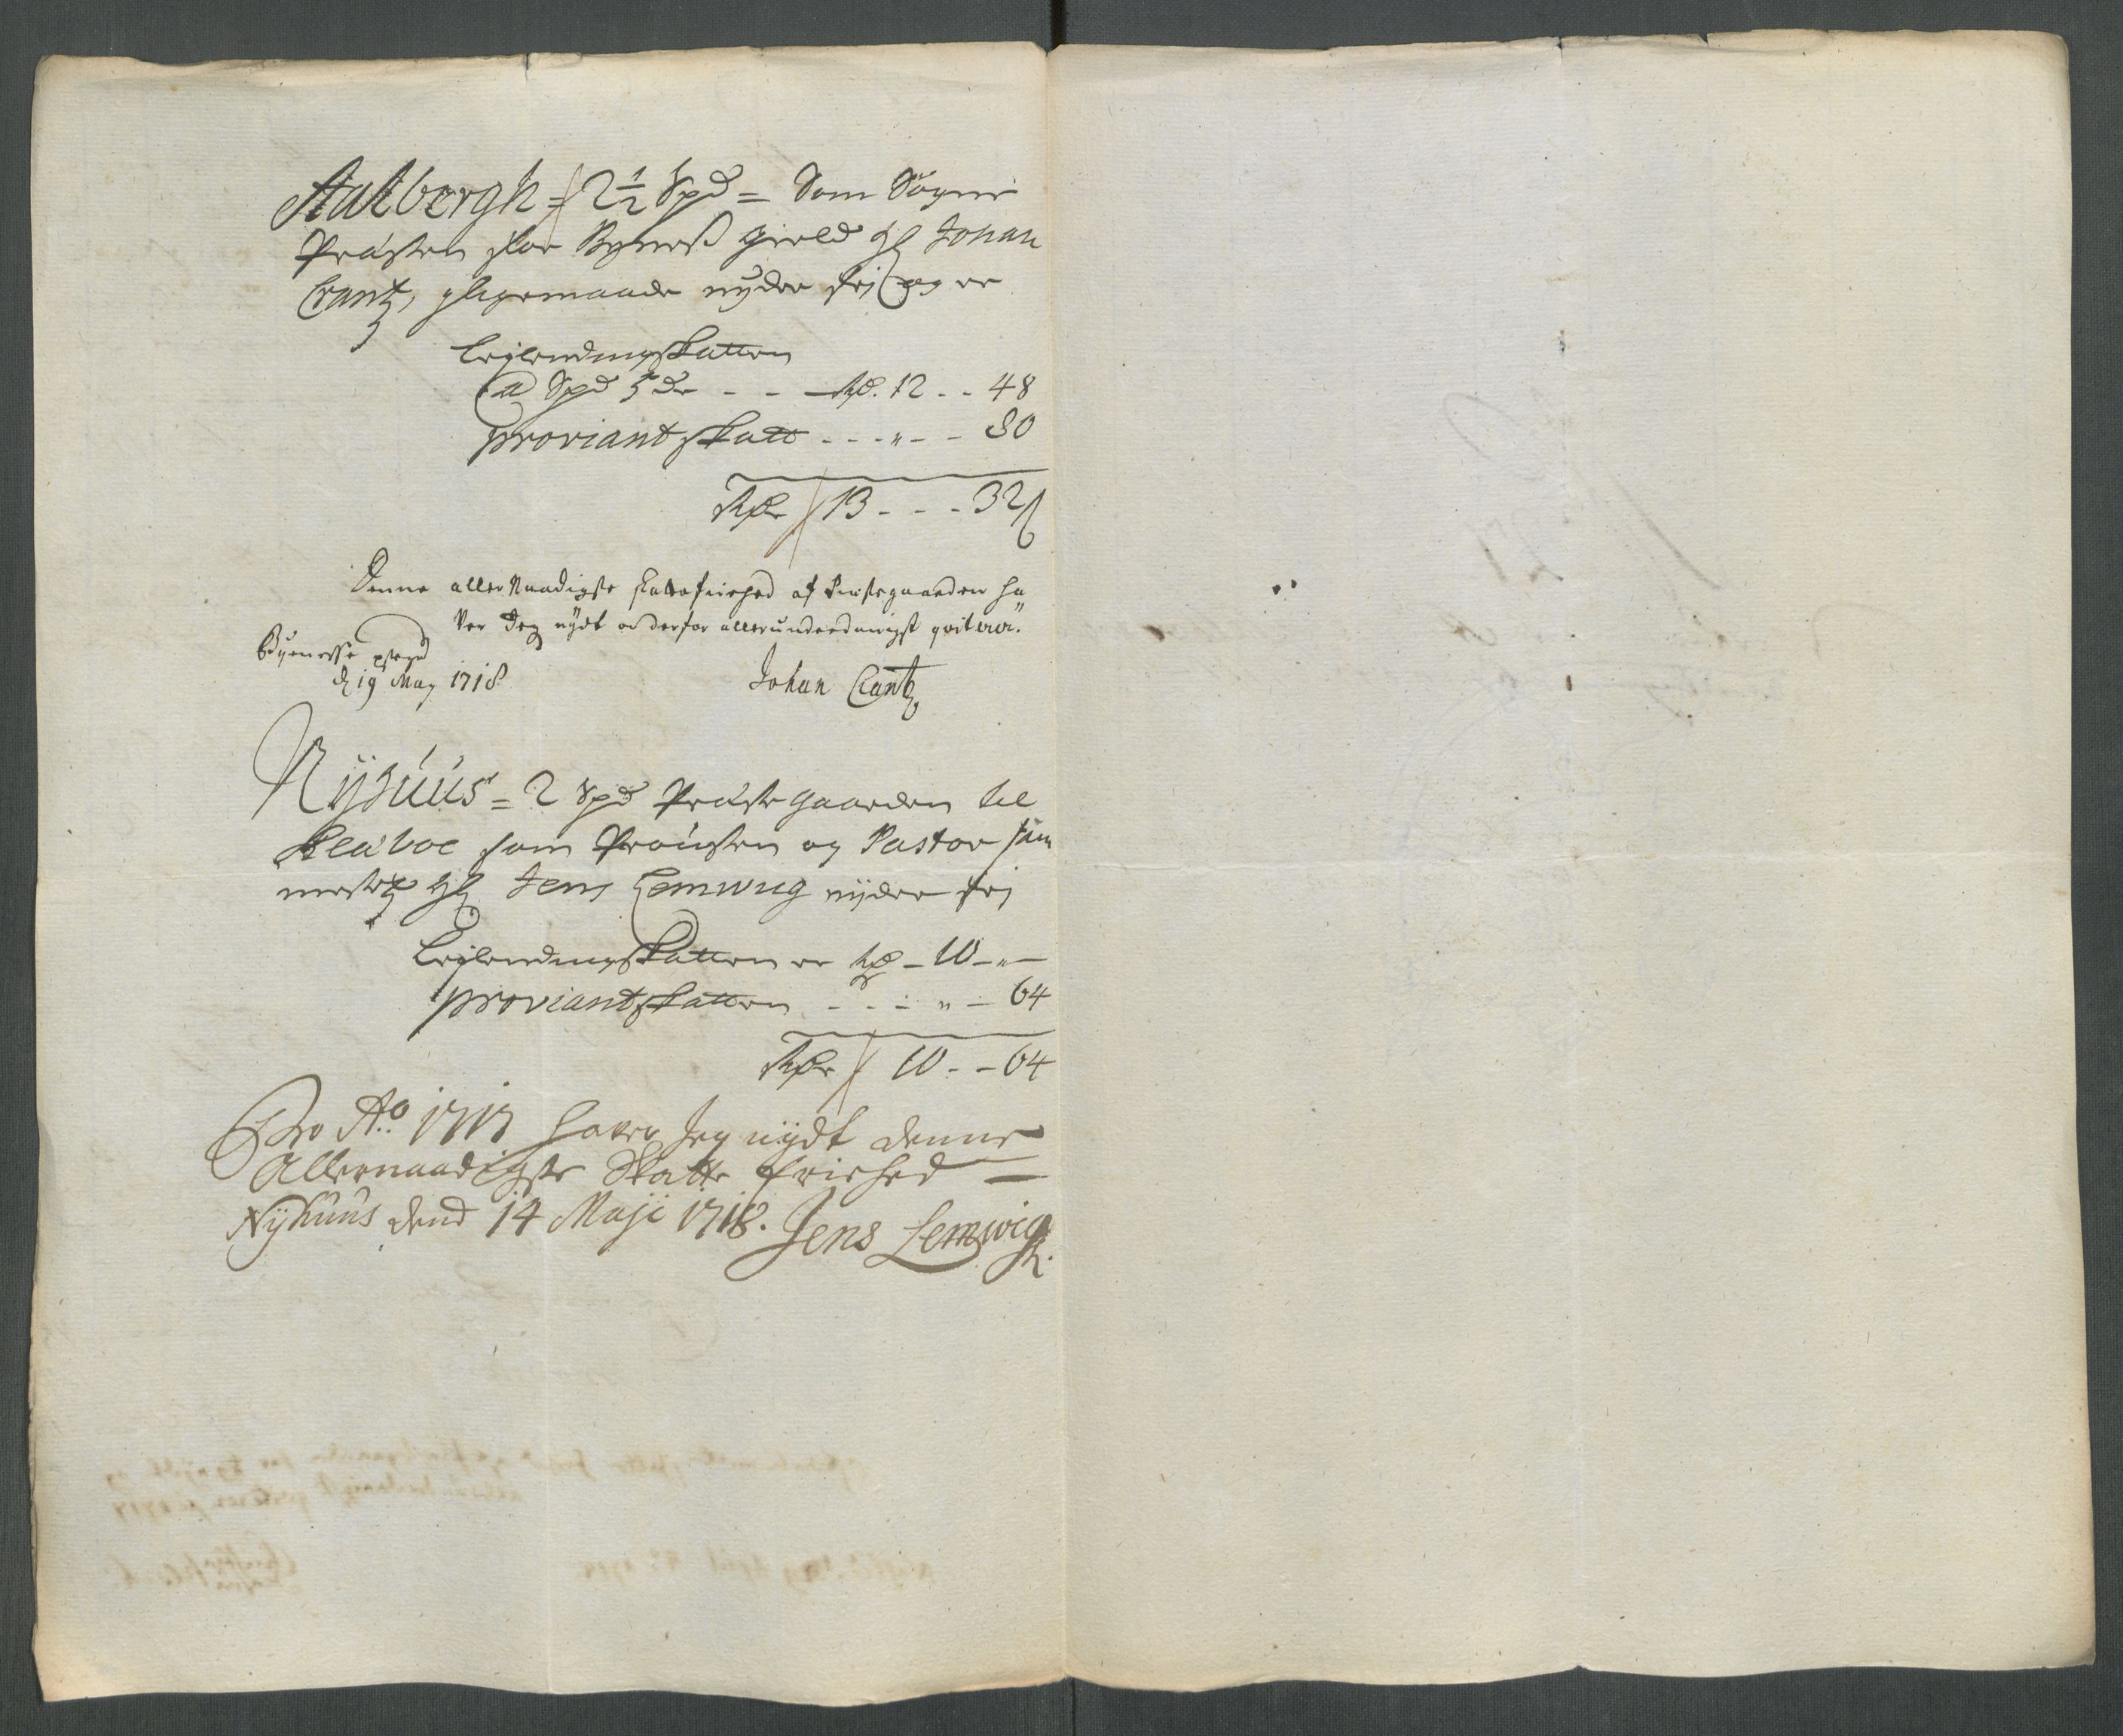 Stalbergh = 2 1/2 Spd = Som Sogne
Præsten for Byneß gield Hr Johan
Crantz, jligemaade nyder frj og er
Leylendingskatten
a Spd 5 dr - - - Rd. 12 - - 48
proviant skatt - - - " - - 80
Rdr 13 - - - 32 s
Denne aller Naadigste skattefriehed af Præstegaarden ha
ver Jeg nydt og derfor allerunderdanigst qvitterer.
Byenesse
d 19 May 1718
Johan Crantz
Nyhuus = 2 Spd Præste gaarden til
Klæboe som Prousten og Pastor
Hr Jens Lemwug nyder frj
Leylendingskatten er Rdr - 10 - " -
proviantskatten - - - " - 64
Rdr 10 - - 64
Pro Ao 1717 haver Jeg nydt denne
Allernaadigste Skatte friehed
Nyhuus dend 14 Maji 1718. Jens Lemwigh.